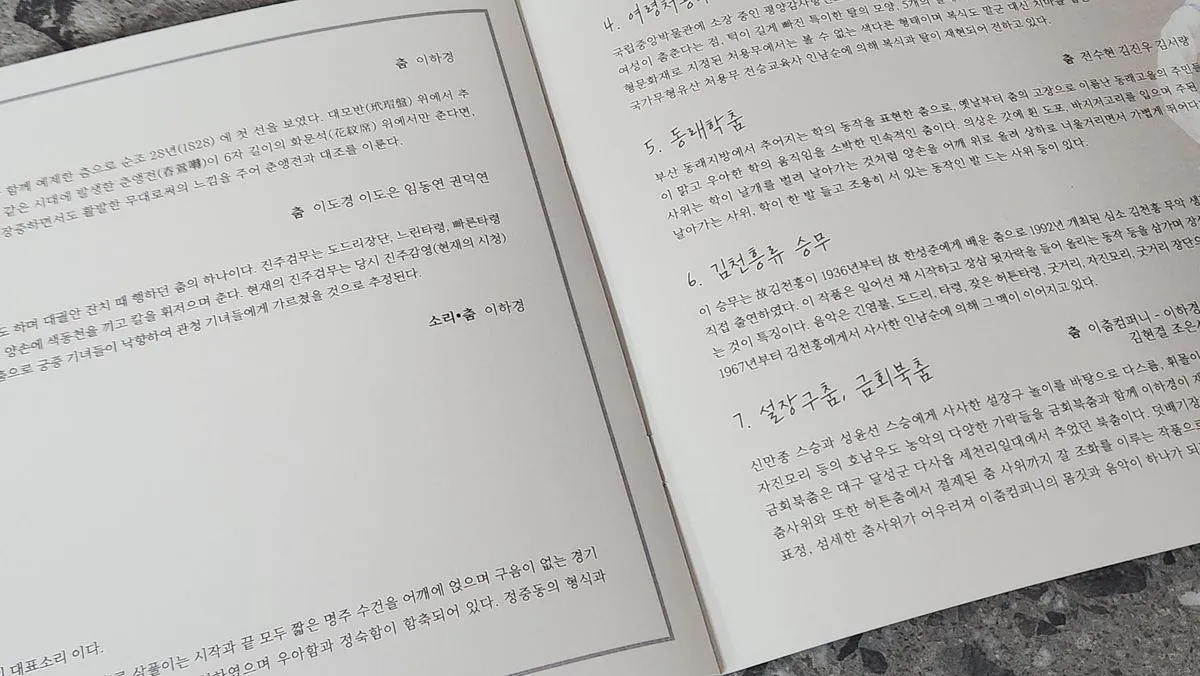 춤 이하경
함께 예제한 춤으로 순조 28년(1828) 에 첫 선을 보였다. 대모반(玳瑁盤) 위에서 추
같은 시대에 발생한 춘앵전(春鶯囀)이 6자 길이의 화문석(花紋席) 위에서만 춘다면,
장중하면서도 활발한 무대로써의 느낌을 주어 춘앵전과 대조를 이룬다.
춤 이도경 이도은 임동연 권덕연
도 하며 대궐안 잔치 때 행하던 춤의 하나이다. 진주검무는 도드리장단, 느린타령, 빠른타령
양손에 색동천을 끼고 칼을 휘저으며 춘다. 현재의 진주검무는 당시 진주감영(현재의 시청)
춤으로 궁중 기녀들이 낙향하여 관청 기녀들에게 가르쳤을 것으로 추정된다.
소리•춤 이하경
대표소리 이다.
살풀이는 시작과 끝 모두 짧은 명주 수건을 어깨에 얹으며 구음이 없는 경기
우아함과 정숙함이 함축되어 있다. 정중동의 형식과
4.
국립중앙박물관에 소장 중인
여성이 춤춘다는 점, 턱이 길게 빠진 특이한 탈의 모양, 5개의
형문화재로 지정된 처용무에서는 볼 수 없는 색다른 형태이며 복식도 말군 대신 치마를
국가무형유산 처용무 전승교육사 인남순에 의해 복식과 탈이 재현되어 전하고 있다.
춤 전수현 김진우 김서량
5. 동래학춤
부산 동래지방에서 추어지는 학의 동작을 표현한 춤으로, 옛날부터 춤의 고장으로 이름난 동래고을의 주민들
이 맑고 우아한 학의 움직임을 소박한 민속적인 춤이다. 의상은 갓에 흰 도포, 바지저고리를 입으며 주된
사위는 학이 날개를 벌려 날아가는 것처럼 양손을 어깨 위로 올려 상하로 너울거리면서 가볍게 뛰어다
날아가는 사위, 학이 한 발 들고 조용히 서 있는 동작인 발 드는 사위 등이 있다.
6. 김천흥류 승무
이 승무는 故김천흥이 1936년부터 故 한성준에게 배운 춤으로 1992년 개최된 심소 김천흥 무악 생
직접 출연하였다. 이 작품은 일어선 채 시작하고 장삼 뒷자락을 들어 올리는 동작 등을 삼가며 장
는 것이 특징이다. 음악은 긴염불, 도드리, 타령, 잦은 허튼타령, 굿거리, 자진모리, 굿거리 장단으
1967년부터 김천흥에게서 사사한 인남순에 의해 그 맥이 이어지고 있다.
춤 이춤컴퍼니 - 이하경
김현결 조은
7. 설장구춤, 금회북춤
신만종 스승과 성윤선 스승에게 사사한 설장구 놀이를 바탕으로 다스름, 휘몰이
자진모리 등의 호남우도 농악의 다양한 가락들을 금회북춤과 함께 이하경이 재
금회북춤은 대구 달성군 다사읍 세천리일대에서 추었던 북춤이다. 덧배기장
춤사위와 또한 허튼춤에서 절제된 춤 사위까지 잘 조화를 이루는 작품으로
표정, 섬세한 춤사위가 어우러져 이춤컴퍼니의 몸짓과 음악이 하나가 되